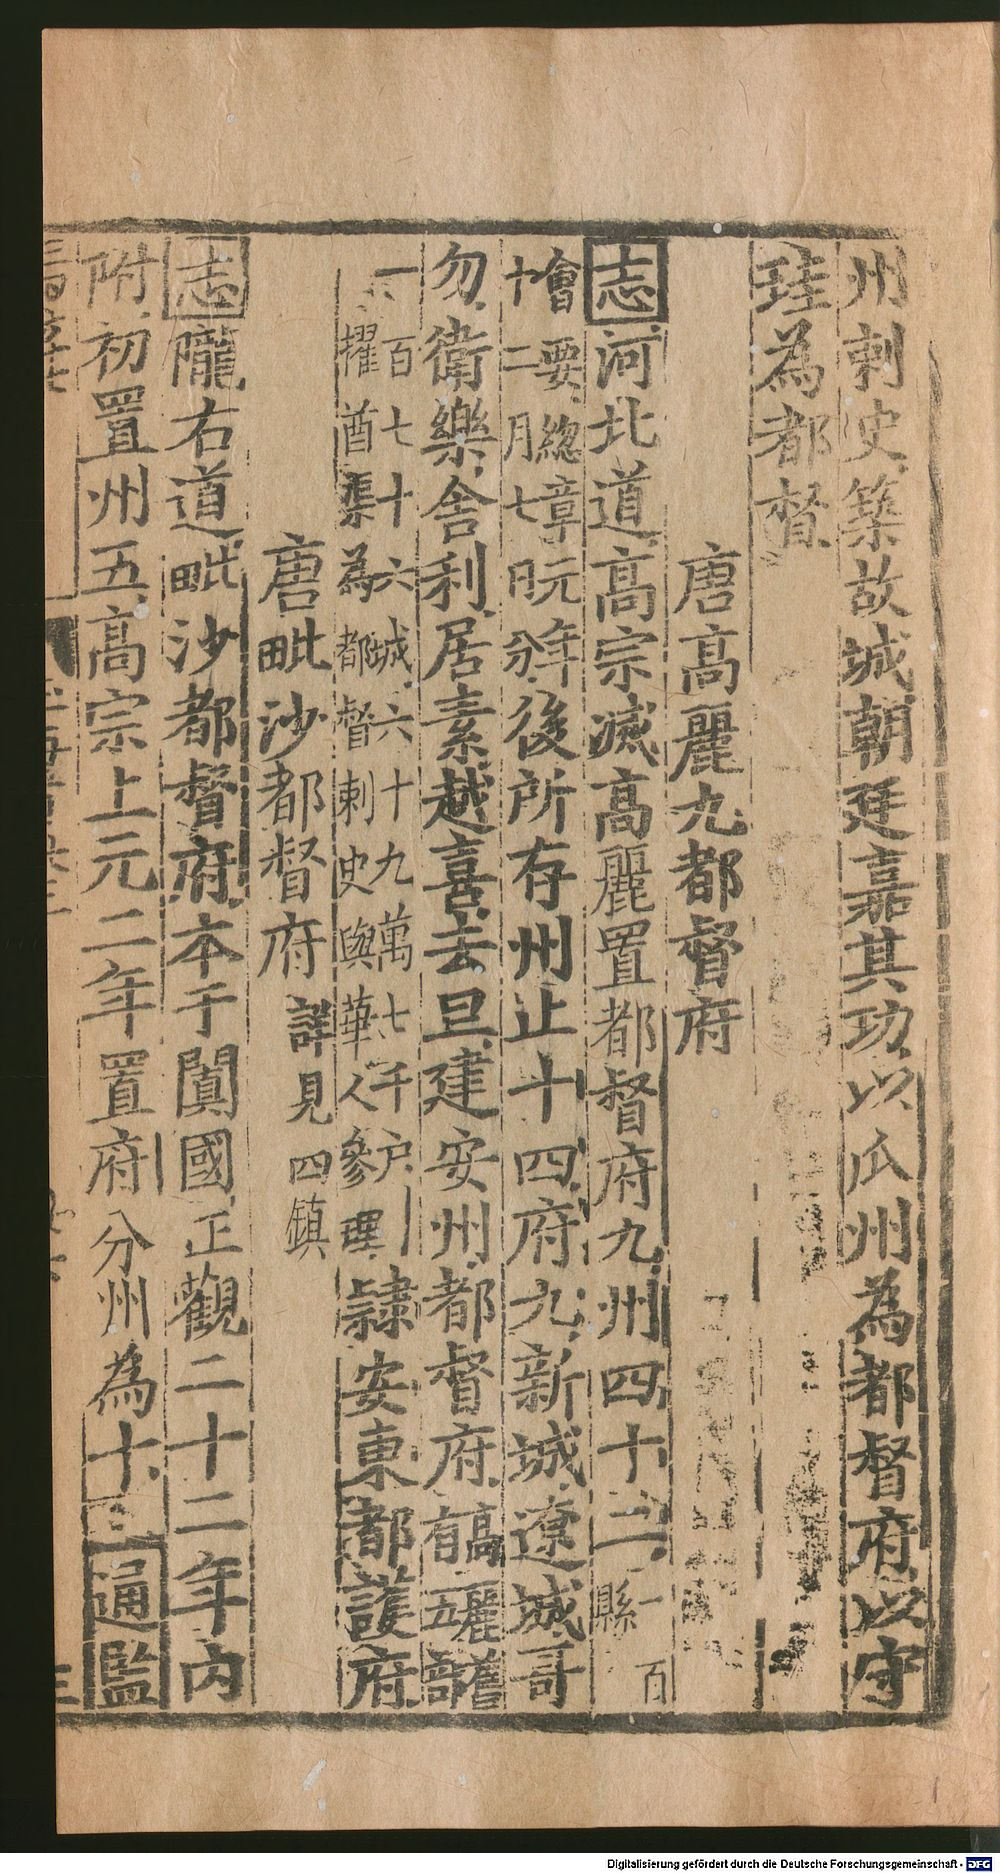 州刺史築故城朝廷嘉其功以瓜州為都督府以守
珪為都督
唐高麗九都督府
志河北道高宗滅高麗置都督府九州四十二縣一百
會要總章元年
十二月七日分後所存州止十四府九新城遼城哥
勿衛樂舍利居素越喜去旦建安州都督府
一百七十六城六十九萬七千戶
擢酋渠為都督刺史與華人參理隷安東都護府
唐毗沙都督府詳見四鎮
志隴右道毗沙都督府本于闐國正觀二十二年內
附初置州五高宗上元二年置府分州為十通鑑
Digitalisierung gefördert durch die Deutsche Forschungsgemeinschaft - DFG